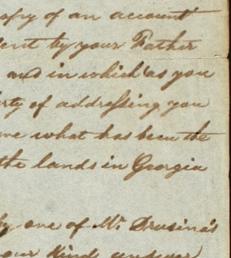 copy of an account
sent by your Father
and in which as you
liberty of addressing you
me what has been the
the lands in Georgia
by one of Mr. Drusina's
your kind answer